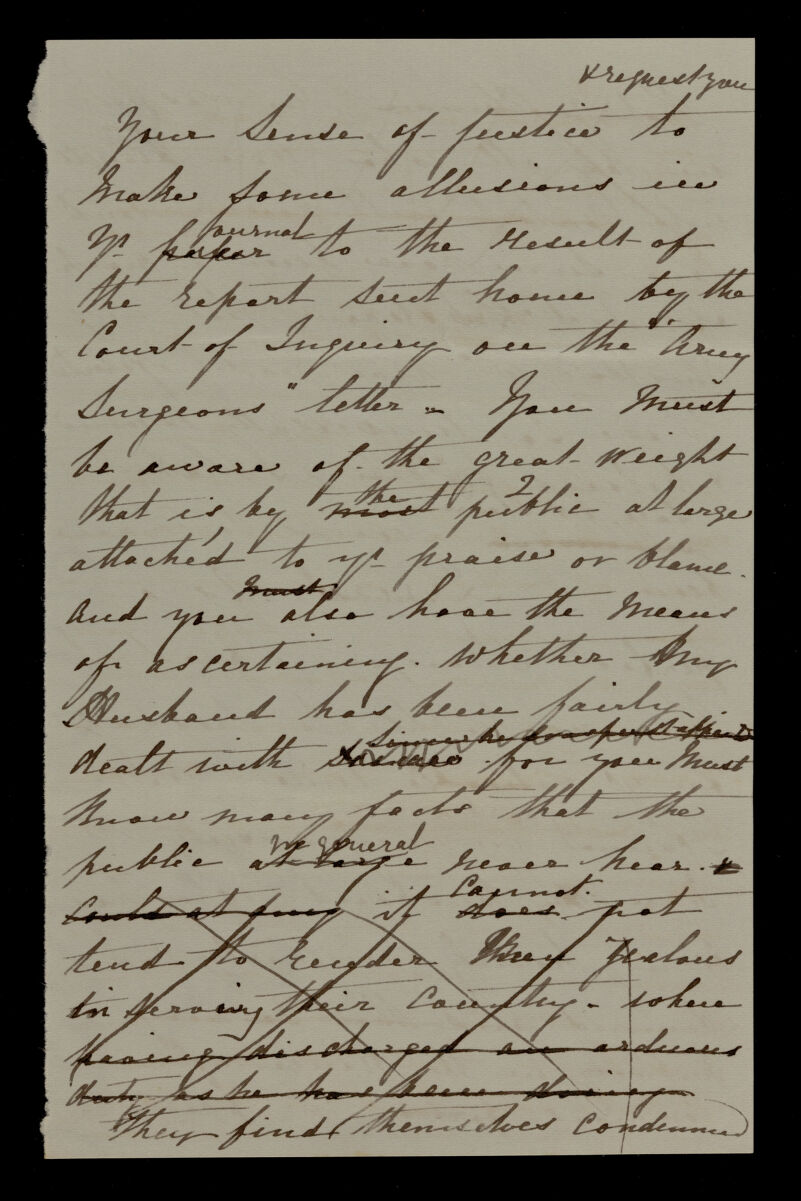 & request you
Your Sense of justice to
Make some allusions in
Yr paper journal to the result of
the report sent home by the
Court of Inquiry on the "Army
Surgeons" letter - You Must
be aware of the great weight
that is by most the public at large
attached to yr praise or blame.
and you must also have the Means
of ascertaining. Whether My
Husband has been fairly
dealt with for you Must
Know many facts that the
public at large in general never hear. &
Could at any it does cannot. not
tend to render Men Zealous
in serving their Country - when
having discharged an arduous
duty as he has been doing
They find themselves Condemned